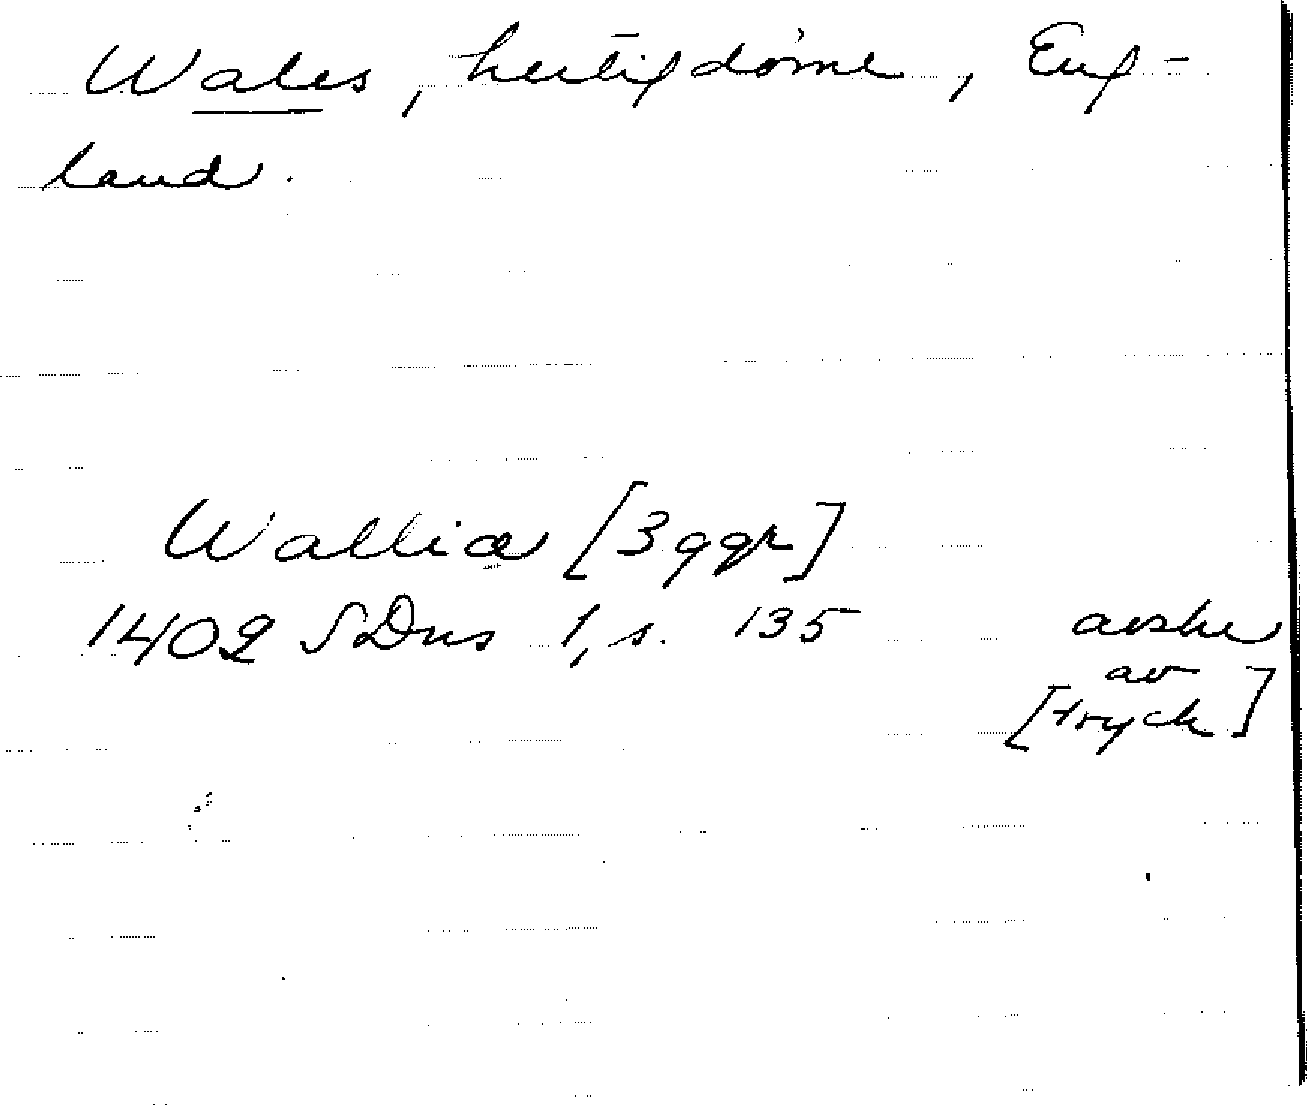 Wales, hertigdöme, Eng-
land.
Walliæ [3 ggr]
1402 SDns 1, s. 135 avskr
av
[tryck]